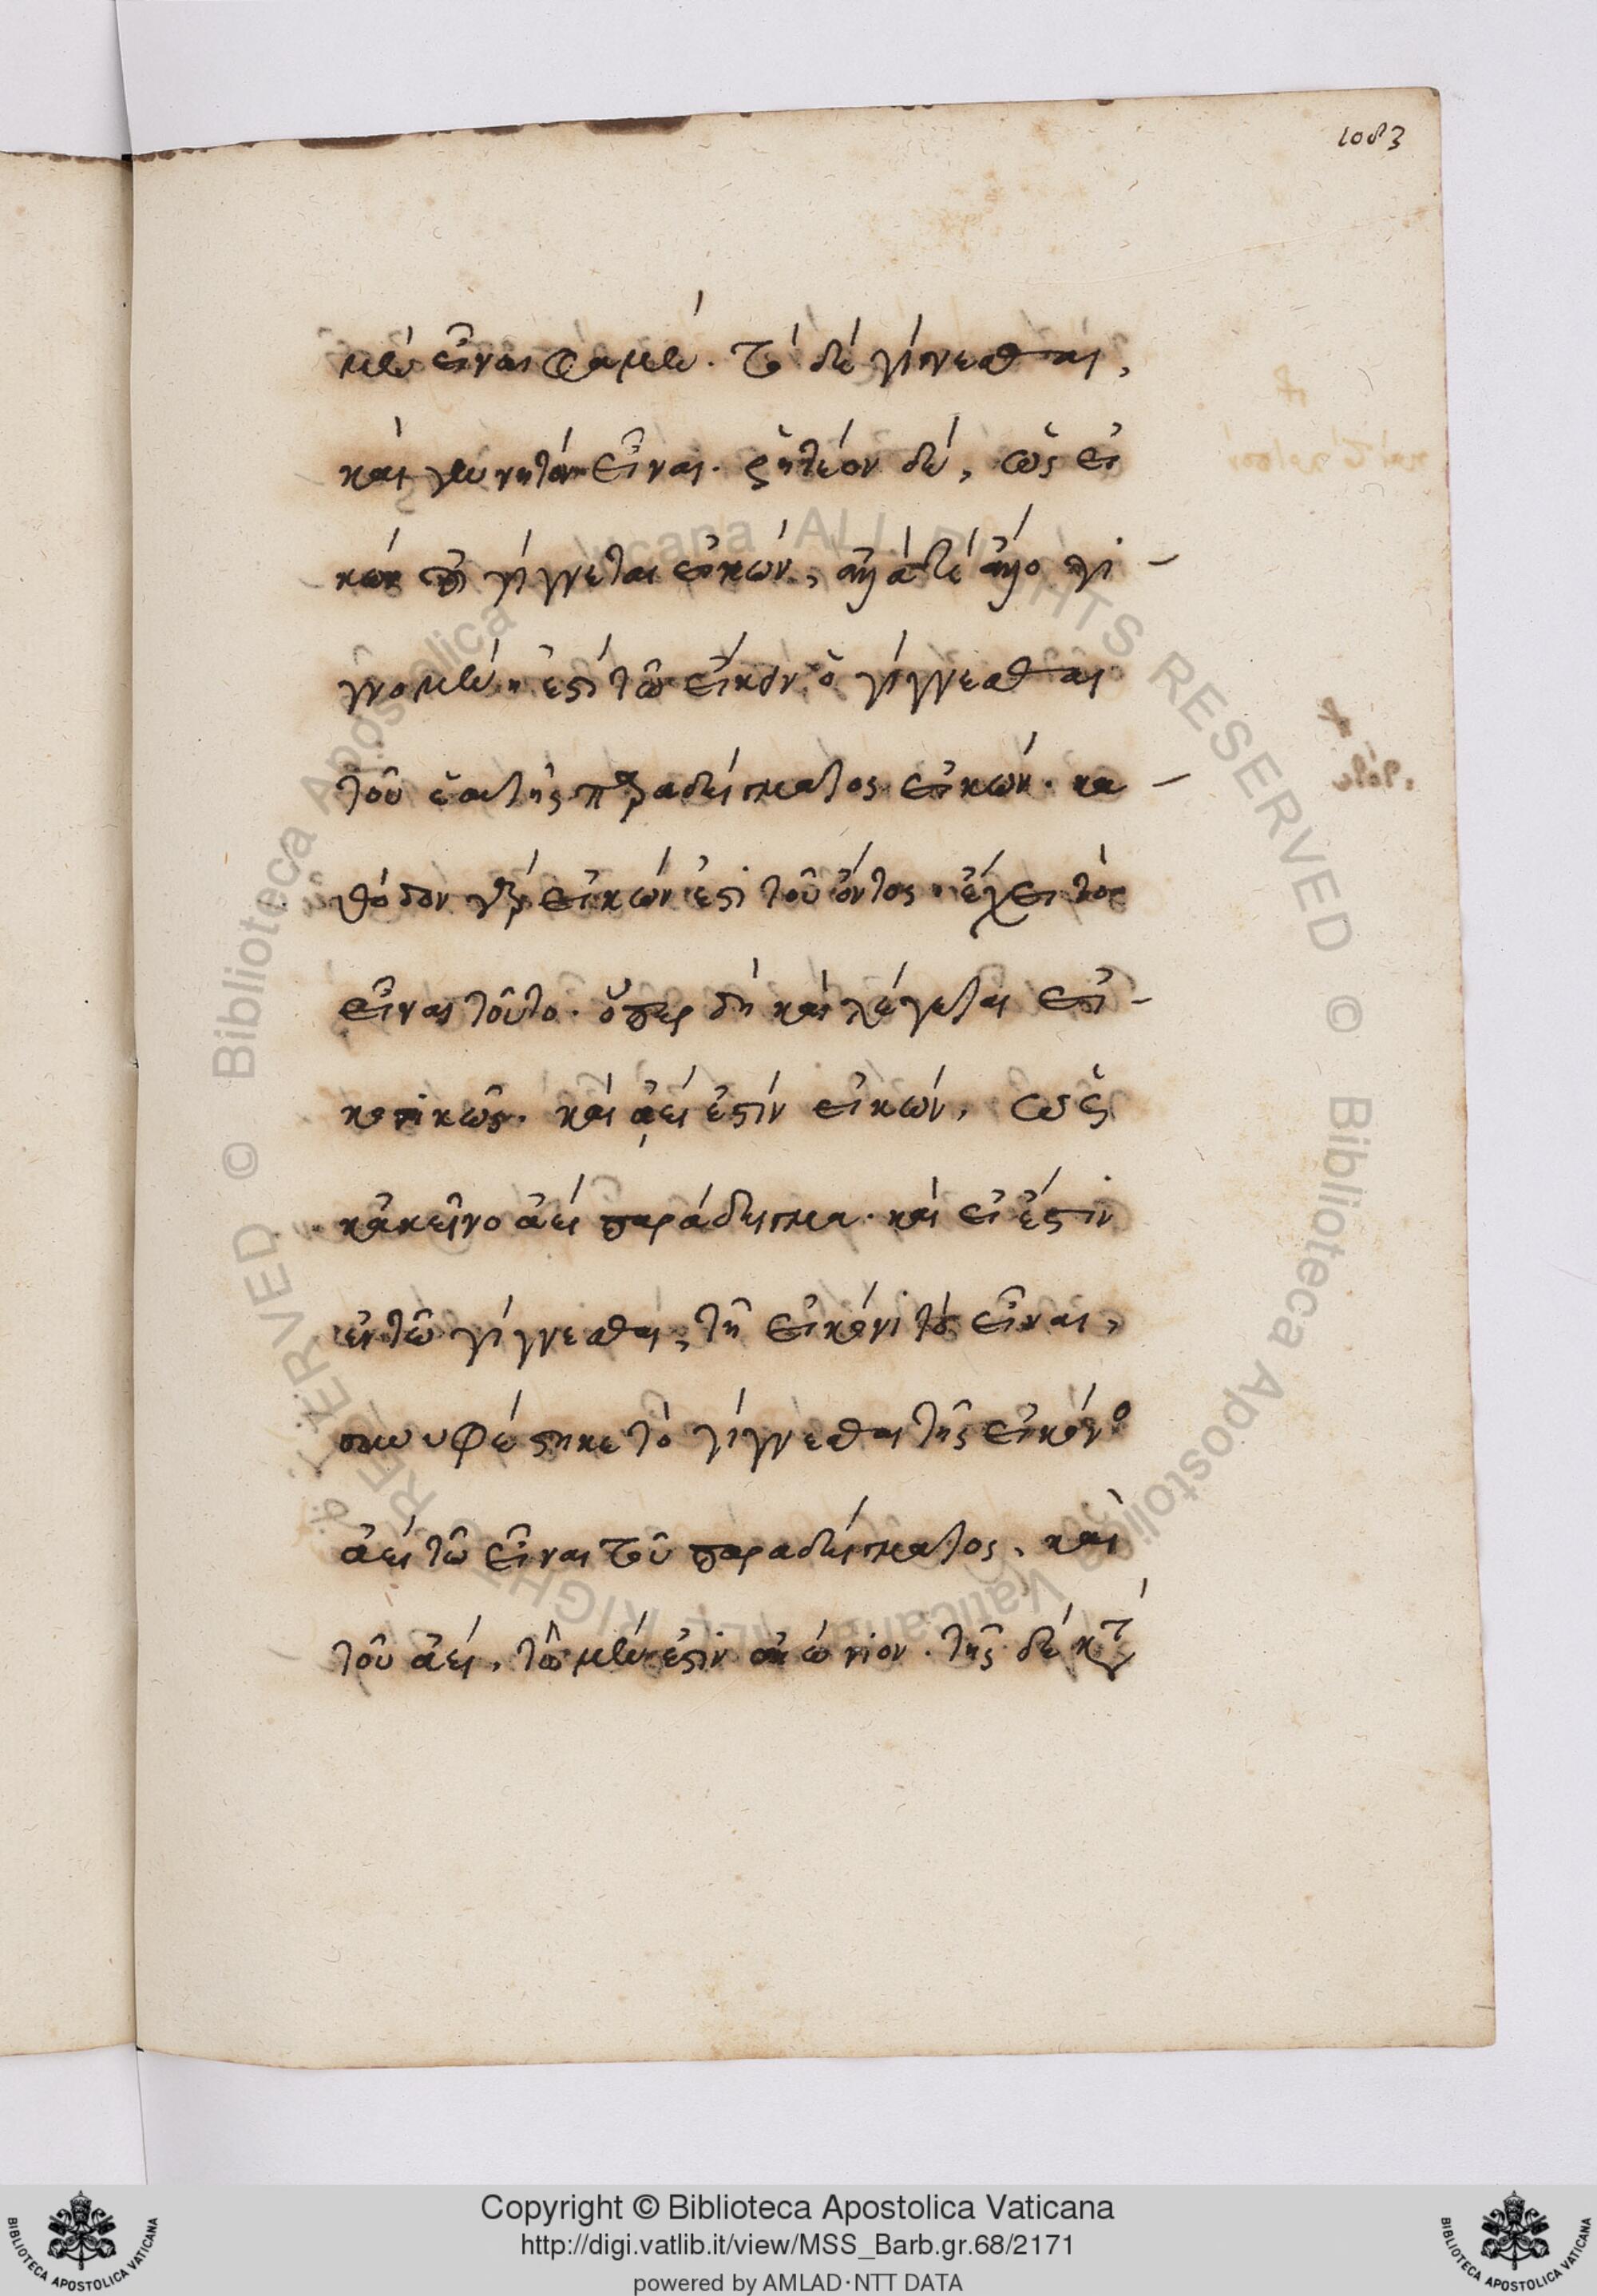 1083
μὲν εἶναι φαμέν. τὸ δὲ γίνεσθαι,
καὶ γεννητὸν εἶναι. ῥητέον δέ, ὡς εἰ
κὼν οὐ γίγνεται εἰκών, ἀλλὰ τὲ ἄλλο γι-
γνομένη ἐστὶ τῶ εἰκόνος γίγνεσθαι
τοῦ ἑαυτῆς παραδείγματος εἰκών. κα-
θόσον γὰρ εἰκών ἐστι τοῦ ὄντος. ἔχει τὸ
εἶναι τοῦτο. ὅπερ δὴ καὶ λέγεται εἰ-
κονικῶς. καὶ ἀεί ἐστίν εἰκών, ὡς
κἀκεῖνο ἀεὶ παράδειγμα. καὶ εἰ ἐστιν
ἐν τῶ γίγνεσθαι, τῆ εἰκόνι τὸ εἶναι,
συνυφέστηκε τὸ γίγνεσθαι τῆς εἰκόνος
ἀεὶ τῶ εἶναι τοῦ παραδείγματος, καὶ
τοῦ ἀεί, τὸ μὲν ἐστὶν αἰώνιον. τῆς δὲ κτ
Copyright © Biblioteca Apostolica Vaticana
http://digi.vatlib.it/view/MSS_Barb.gr.68/2171
powered by AMLAD·NTT DATA
BIBLIOTECA APOSTOLICA VATICANA
BIBLIOTECA APOSTOLICA VATICANA
© Biblioteca Apostolica Vaticana ALL RIGHTS RESERVED © Biblioteca Apostolica Vaticana ALL RIGHTS RESERVED